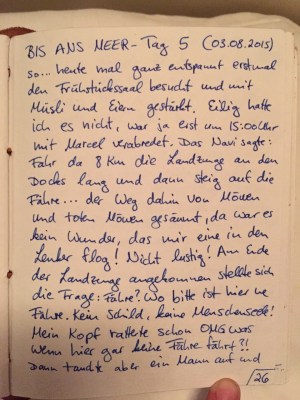 BIS ANS MEER - Tag 5 (03.08.2015)
so... heute mal ganz entspannt erstmal
den Frühstückssaal besucht und mit
Müsli und Eiern gestärkt. Eilig hatte
ich es nicht, war ja erst um 15:00 Uhr
mit Marcel verabredet. Das Navi sagte:
Fahr da 8 Km die Landzunge an den
Docks lang und dann steig auf die
Fähre... der Weg dahin von Möwen
und toten Möwen gesäumt, da war es
kein Wunder, das mir eine in den
Lenker flog! Nicht lustig! Am Ende
der Landzunge angekommen stellte sich
die Frage: Fähre? Wo bitte ist hier ne
Fähre. Kein Schild, keine Menschenseele!
Mein Kopf ratterte schon OMG was
wenn hier gar keine Fähre fährt?!
Dann tauchte aber ein Mann auf und
/26